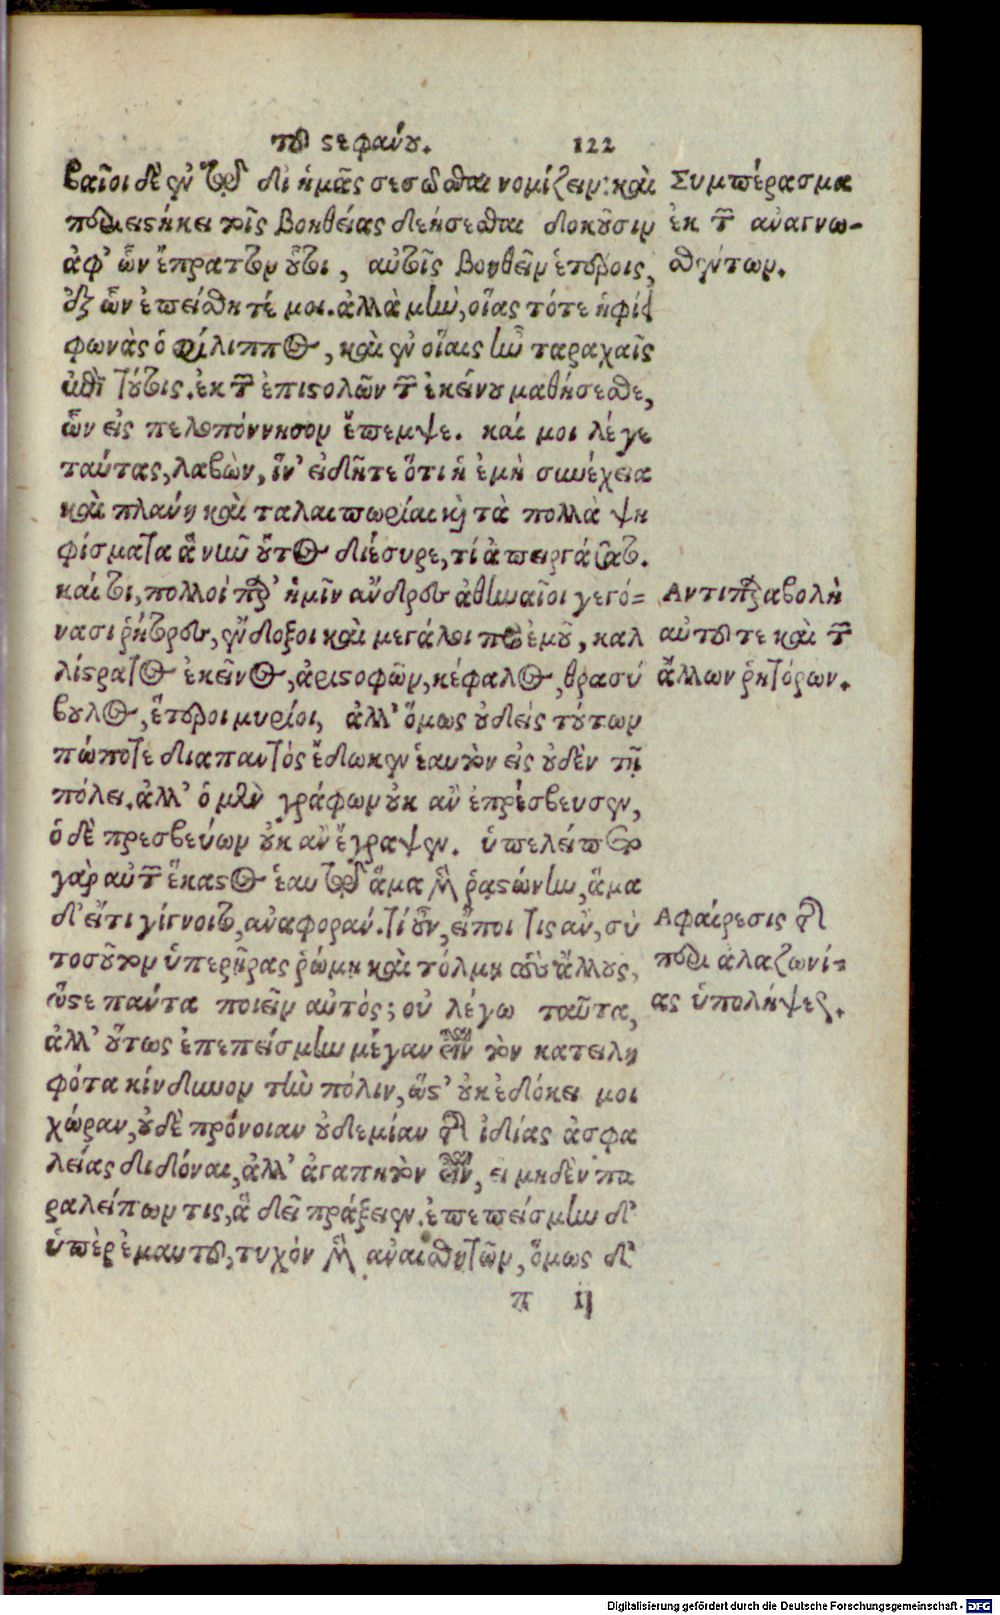 τοῦ στεφάνου. 122
βαῖοι δὲ ἐν τῷ δι' ἡμᾶς σεσῶσθαι νομίζειν: καὶ
περιεστήκει τοῖς βοηθείας δεήσεσθαι δοκοῦσιν
ἀφ' ὧν ἔπραττον οὗτοι, αὐτοῖς βοηθεῖν ἑτέροις,
ἐξ ὧν ἐπείσθητέ μοι. ἀλλὰ μὴν, οἵας τότε ἠφίει
φωνὰς ὁ φίλιππος, καὶ ἐν οἵαις ἦν ταραχαῖς
ἐπὶ τούτοις. ἐκ τῶν ἐπιστολῶν τῶν ἐκείνου μαθήσεσθε,
ὧν εἰς πελοπόννησον ἔπεμψε. καί μοι λέγε
ταύτας, λαβὼν, ἵν' εἰδῆτε ὅτι ἡ ἐμὴ συνέχεια
καὶ πλάνη καὶ ταλαιπωρίαι καὶ τὰ πολλὰ ψη
φίσματα ἃ νῦν οὗτος διέσυρε, τί ἀπειργάσατο.
καίτοι, πολλοί παρ' ἡμῖν ἄνδρες ἀθηναῖοι γεγό=
νασι ῥήτορες, ἔνδοξοι καὶ μεγάλοι πρὸ ἐμοῦ, καλ
λίστρατος ἐκεῖνος, ἀριστοφῶν, κέφαλος, θρασύ
βουλος, ἕτεροι μυρίοι, ἀλλ' ὅμως οὐδεὶς τούτων
πώποτε διαπαντὸς ἔδωκεν ἑαυτὸν εἰς οὐδὲν τῇ
πόλει. ἀλλ' ὁ μὲν γράφων οὐκ ἂν ἐπρέσβευσεν,
ὁ δὲ πρεσβεύων οὐκ ἂν ἔγραψεν. ὑπελείπετο
γὰρ αὐτῶν ἕκαστος ἑαυτῷ ἅμα μὲν ῥᾳστώνην, ἅμα
δ' εἴ τι γίγνοιτο, ἀναφοράν. τί οὖν, εἴποι τις ἂν, σὺ
τοσοῦτον ὑπερῆρας ῥώμῃ καὶ τόλμῃ τοὺς ἄλλους,
ὥστε πάντα ποιεῖν αὐτός; οὐ λέγω ταῦτα,
ἀλλ' οὕτως ἐπεπείσμην μέγαν εἶναι τὸν κατειλη
φότα κίνδυνον τὴν πόλιν, ὥστ' οὐκ ἐδόκει μοι
χώραν, οὐδὲ πρόνοιαν οὐδεμίαν τῆς ἰδίας ἀσφα
λείας διδόναι, ἀλλ' ἀγαπητὸν εἶναι, εἰ μηδὲν πα
ραλείπων τις, ἃ δεῖ πράξειεν. ἐπεπείσμην δ'
ὑπὲρ ἐμαυτοῦ, τυχὸν μὲν ἀναισθητῶν, ὅμως δ'
π ij
Συμπέρασμα
ἐκ τῶν ἀναγνω-
σθέντων.
Αντιπαραβολὴ
αὐτοῦ τε καὶ τῶν
ἄλλων ῥητόρων.
Αφαίρεσις τῆς
περὶ ἀλαζονεί=
ας ὑπολήψεως.
Digitalisierung gefördert durch die Deutsche Forschungsgemeinschaft - DFG